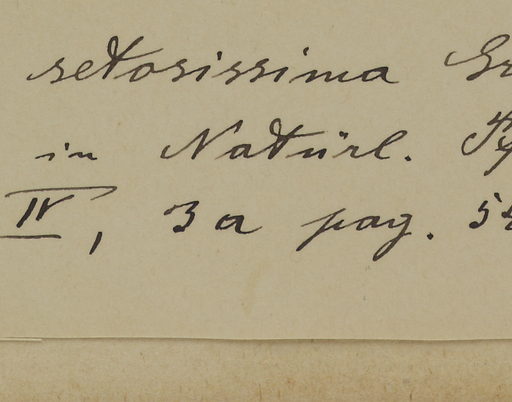 setosissima
in Natürl.
IV, 3a pag.